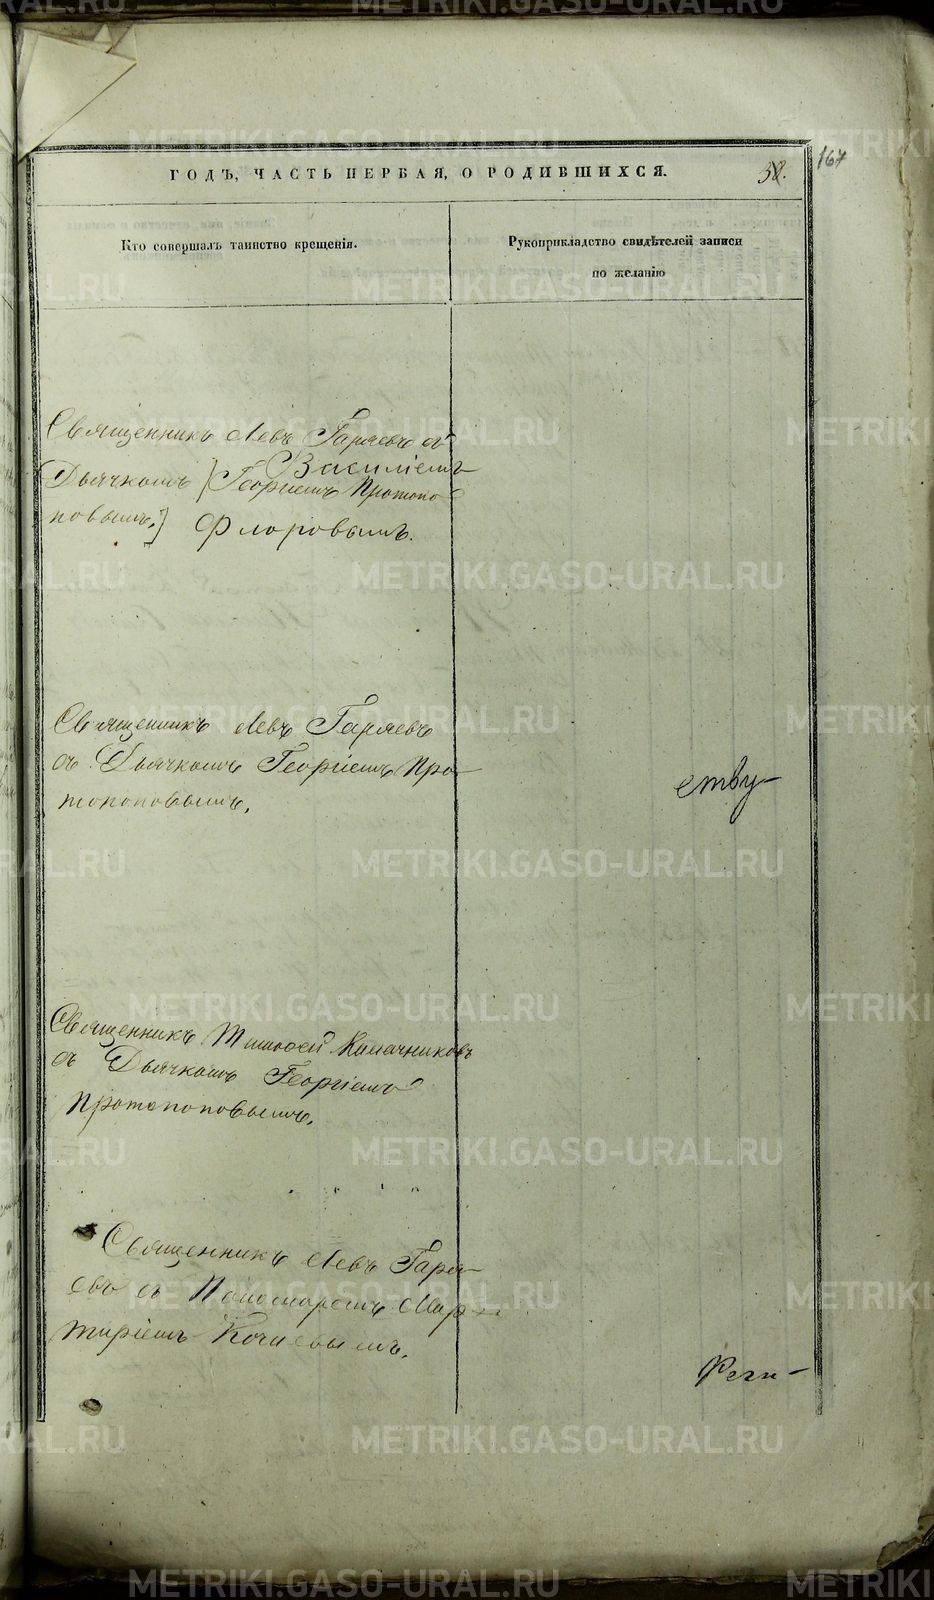 ГОДЪ, ЧАСТЬ ПЕРВАЯ, О РОДИВШИХСЯ.
38.
167
Кто совершалъ таинство крещенія.
Рукоприкладство свидѣтелей записи
по желанію
Священникъ Левъ Гаряевъ съ
Василіемъ
Дьячкомъ [Георгіемъ Протопо-
повымъ.] Флоровымъ.
Священникъ Левъ Гаряевъ
съ Дьячкомъ Георгіемъ Про-
топоповымъ.
ству-
Священникъ Тимофей
съ Дьячкомъ Георгіемъ
Протопоповымъ.
Священникъ Левъ Гаря-
евъ съ Пономаремъ Мар-
тиріемъ
METRIKI.GASO-URAL.RU